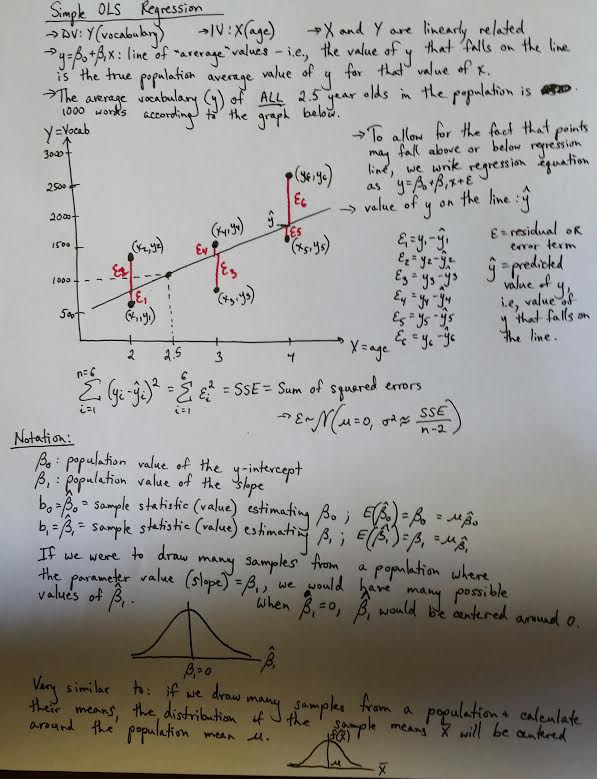 Simple OLS Regression
→DV: Y(vocabulary) →IV: X(age) →X and Y are linearly related
→y=β₀+β₁x: line of "average" values - i.e., the value of y that falls on the line
is the true population average value of y for that value of x.
→The average vocabulary (y) of ALL 2.5 year olds in the population is
1000 words according to the graph below.
Y=Vocab
3000
2500
2000
1500
1000
500
2
2.5
3
4
X=age
(x₂,y₂)
ε₂
ε₁
(x₁,y₁)
(x₄,y₄)
ε₄
ε₃
(x₃,y₃)
(x₆,y₆)
ε₆
ŷ
ε₅
(x₅,y₅)
→To allow for the fact that points
may fall above or below regression
line, we write regression equation
as y=β₀+β₁x+ε
→ value of y on the line: ŷ
ε₁=y₁-ŷ₁
ε₂=y₂-ŷ₂
ε₃=y₃-ŷ₃
ε₄=y₄-ŷ₄
ε₅=y₅-ŷ₅
ε₆=y₆-ŷ₆
ε=residual OR
error term
ŷ=predicted
value of y,
i.e, value of
y that falls on
the line.
n=6 Σ i=1 (yᵢ-ŷᵢ)² = 6 Σ i=1 εᵢ² = SSE = Sum of squared errors
→ε~N(μ=0, σ²≈ SSE/n-2)
Notation:
β₀: population value of the y-intercept
β₁: population value of the slope
b₀=β̂₀= sample statistic (value) estimating β₀; E(β̂₀)=β₀ =μβ̂₀
b₁=β̂₁= sample statistic (value) estimating β₁; E(β̂₁)=β₁ =μβ̂₁
If we were to draw many samples from a population where
the parameter value (slope)=β₁, we would have many possible
values of β̂₁. When β₁=0, β̂₁ would be centered around 0.
β₁=0
β̂₁
Very similar to: if we draw many samples from a population + calculate
their means, the distribution of the sample means X̄ will be centered
around the population mean μ.
f(x̄)
μ
X̄